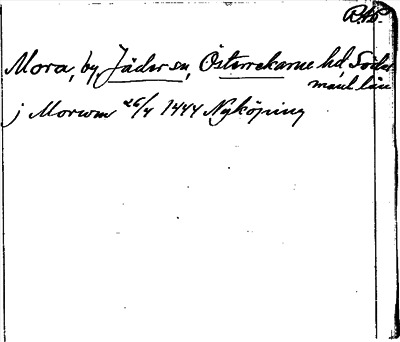 R.Ap.
Mora, by, Jäder sn, Österrekarne hd, Söder
manl län
j Morom 26/4 1444 Nyköping